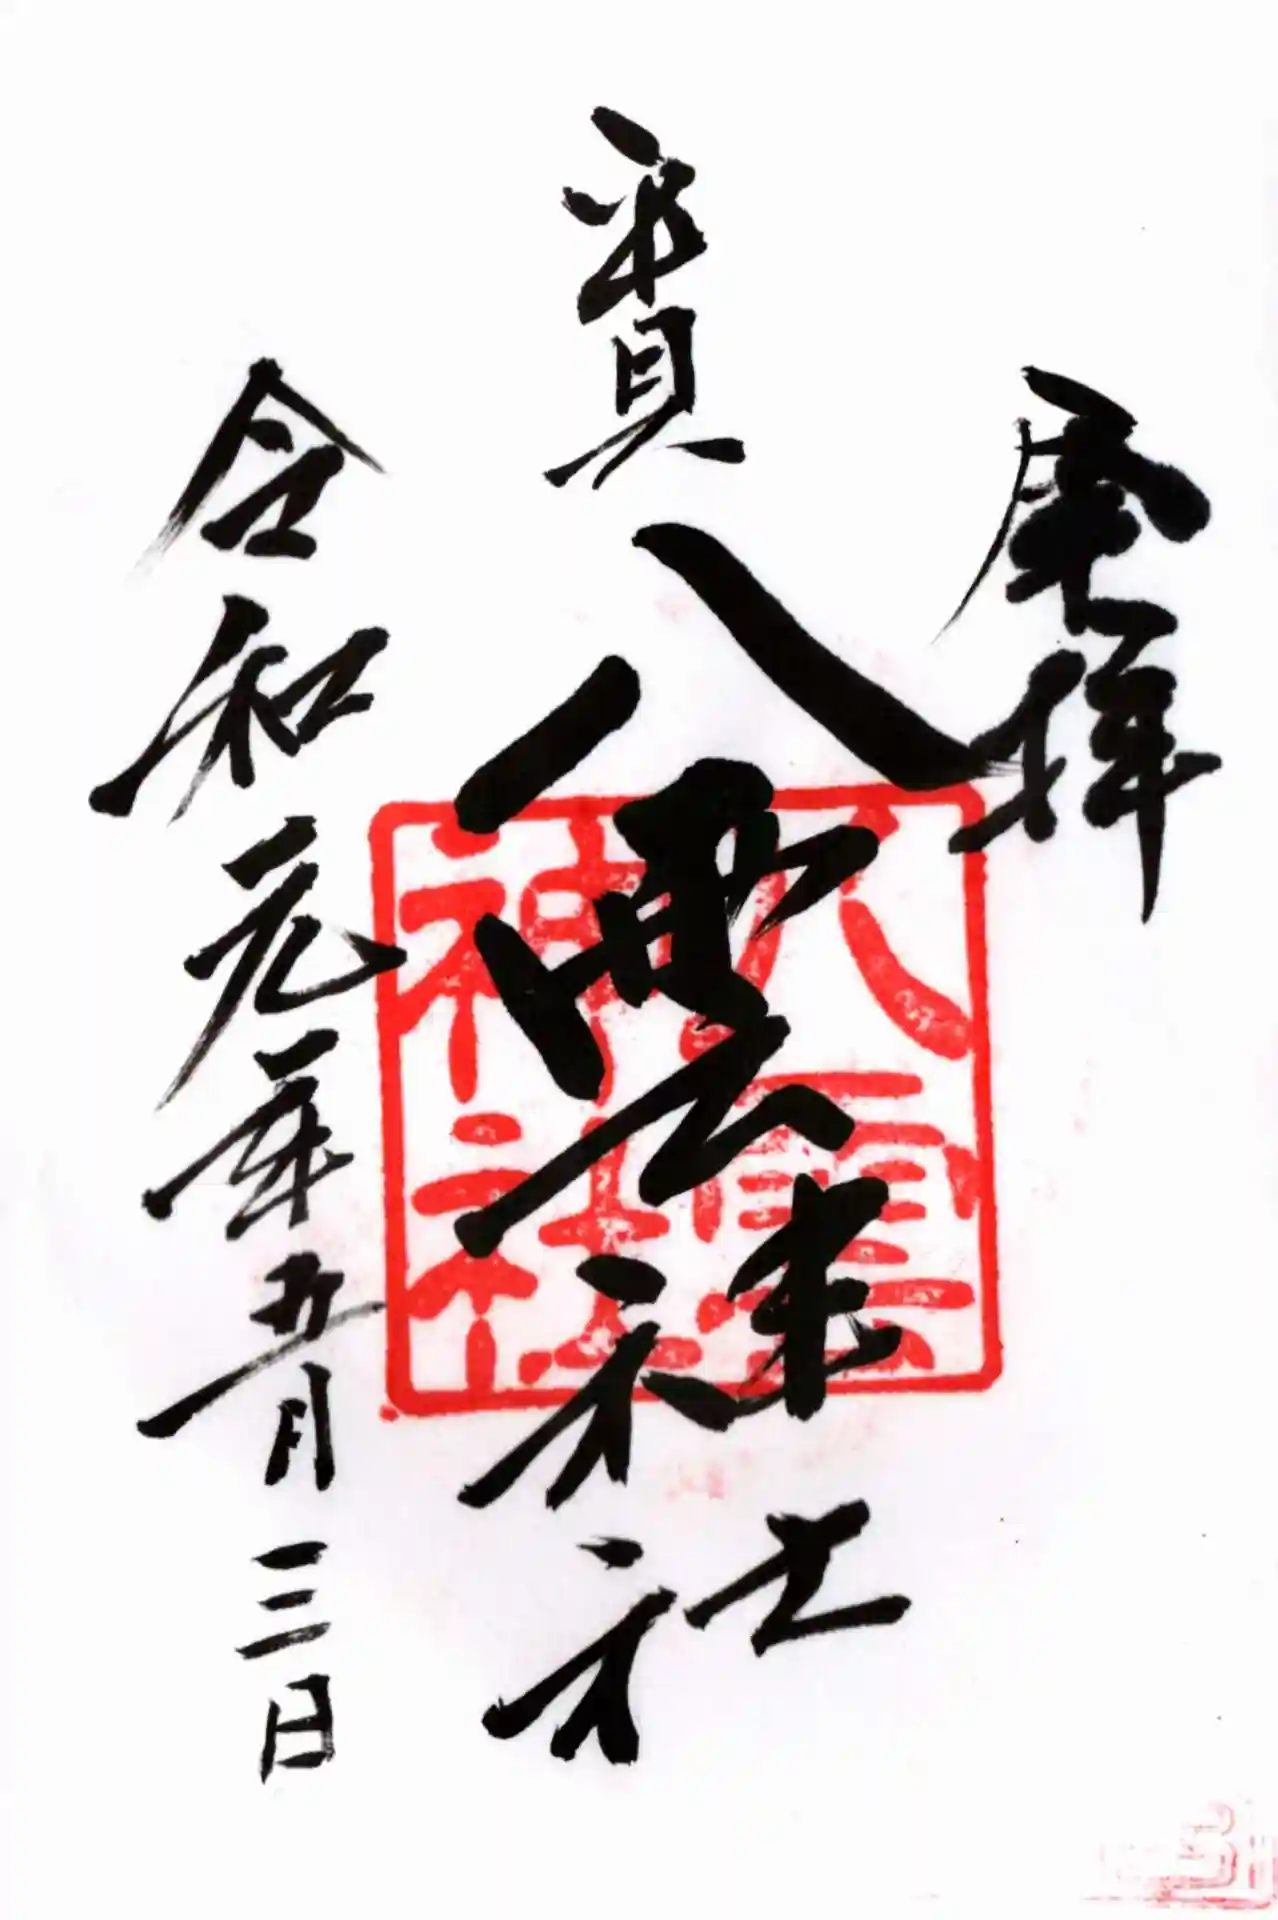 奉拝
八雲神社
八雲神社
令和元年五月三日